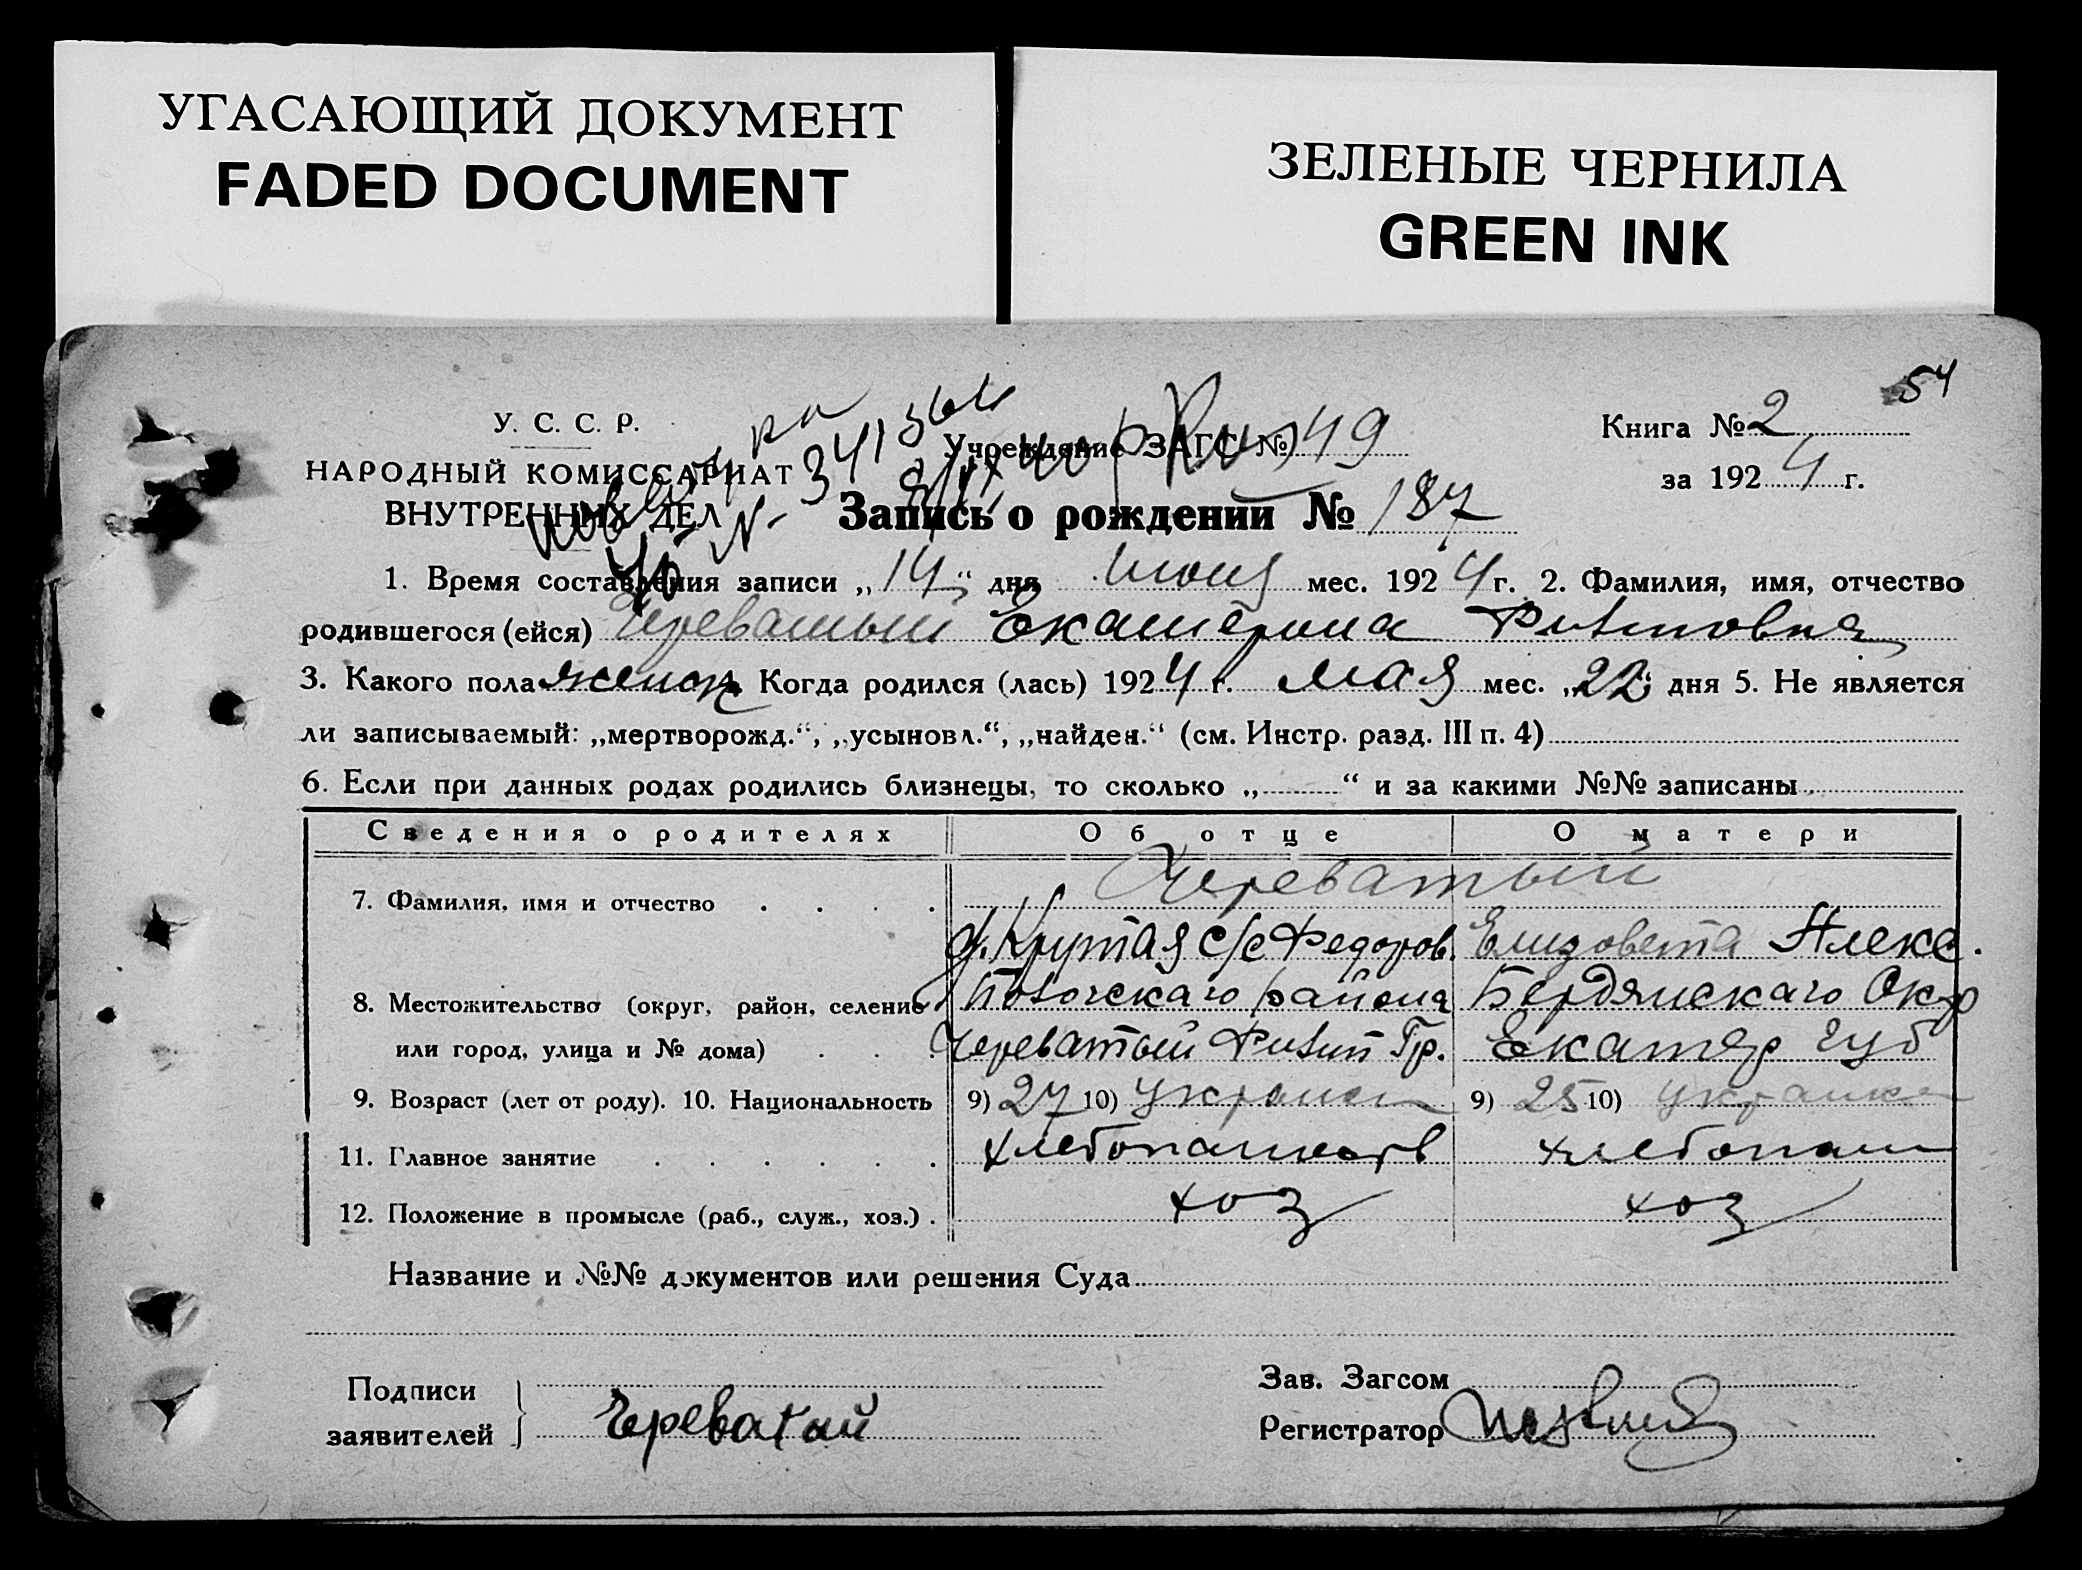 УГАСАЮЩИЙ ДОКУМЕНТ
FADED DOCUMENT
ЗЕЛЕНЫЕ ЧЕРНИЛА
GREEN INK
54
У. С. С. Р.
НАРОДНЫЙ КОМИССАРИАТ
ВНУТРЕННИХ ДЕЛ
№ 341364
Учреждение ЗАГС № 49
Книга № 2
за 1924 г.
Запись о рождении № 187
1. Время составления записи „14“ дня июня мес. 1924 г. 2. Фамилия, имя, отчество
родившегося (ейся) Череватый Екатерина Филиповна
3. Какого пола женск 4. Когда родился (лась) 1924 г. мая мес. „22“ дня 5. Не является
ли записываемый: „мертворожд.“, „усыновл.“, „найден.“ (см. Инстр. разд. III п. 4)
6. Если при данных родах родились близнецы, то сколько „ “ и за какими №№ записаны
Сведения о родителях Об отце О матери
7. Фамилия, имя и отчество Череватый
д. Крутая с/с Федоров. Елизовета Алекс.
8. Местожительство (округ, район, селение района Бердянскаго Окр
или город, улица и № дома) Череватый Филип Гр. Екатер губ
9. Возраст (лет от роду). 10. Национальность 9) 27 10) Украинец 9) 25 10) Украинка
11. Главное занятие хлебопашеств хлебопаш
12. Положение в промысле (раб., служ., хоз.) хоз хоз
Название и №№ документов или решения Суда
Подписи
заявителей Череватый
Зав. Загсом
Регистратор